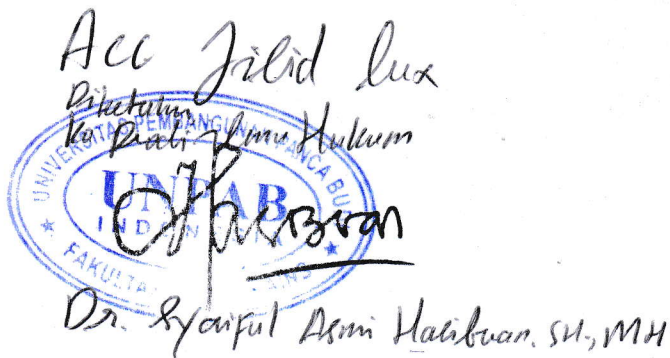 Acc Jilid lux
Diketahui
Ka Prodi Ilmu Hukum
UNIVERSITAS PEMBANGUNAN PANCA BUDI
UNPAB
INDONESIA
FAKULTAS
Dr. Syaiful Asmi Hasibuan. SH., MH